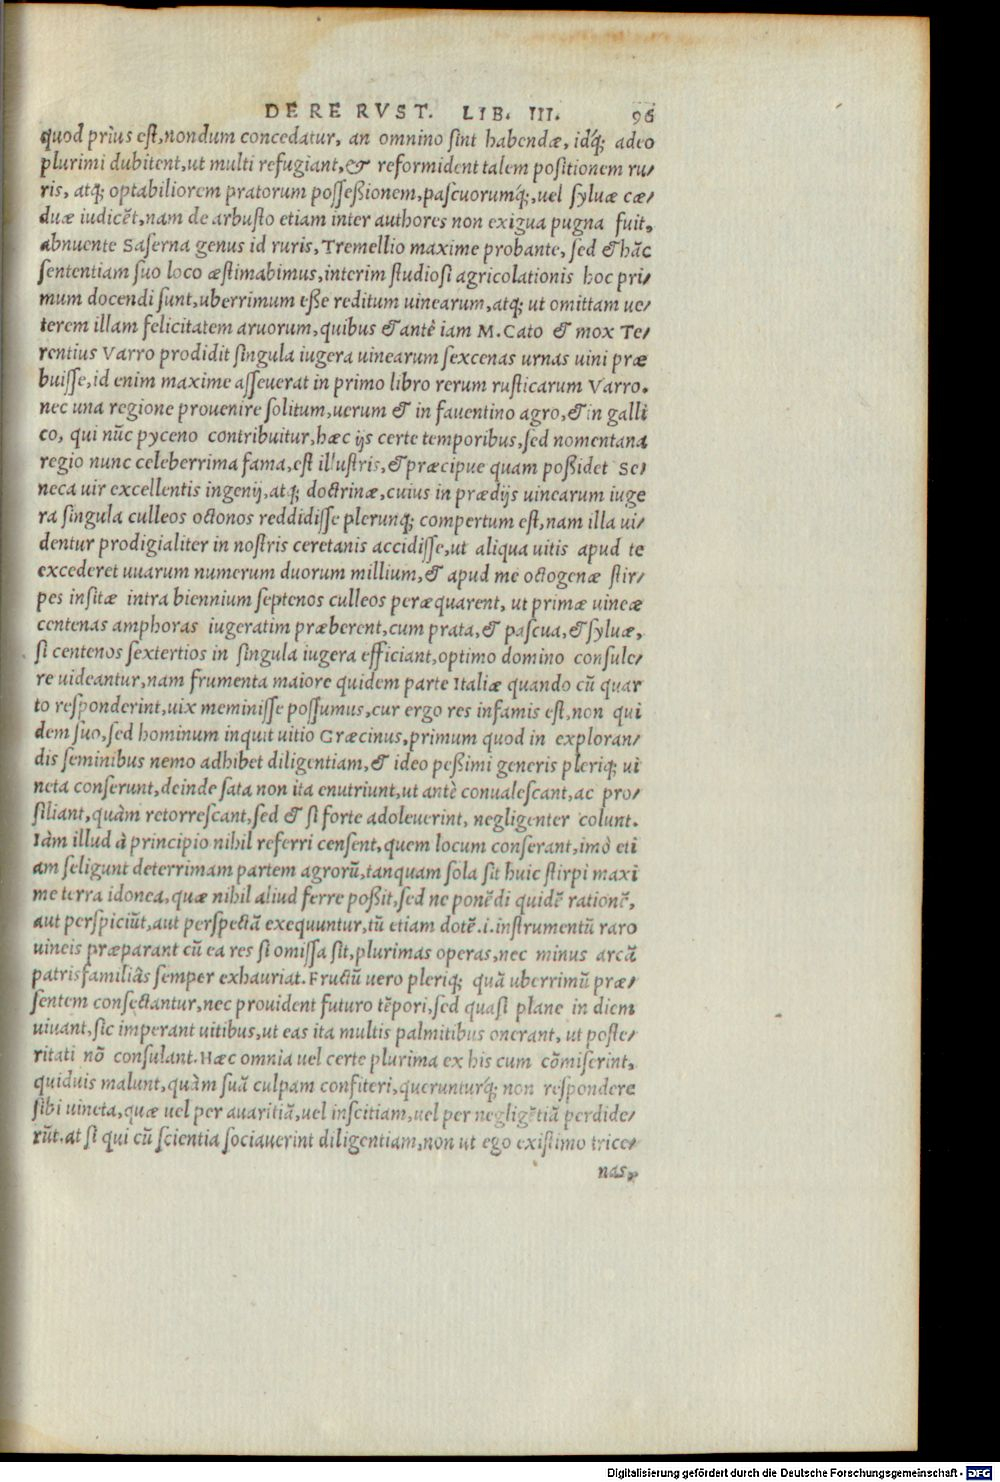 DE RE RVST. LIB. III. 96
quod prìus est, nondum concedatur, an omnino sint habendæ, idq́; adeo
plurimi dubitent, ut multi refugiant, & reformident talem positionem ru/
ris, atq; optabiliorem pratorum possessionem, pascuorumq́;, uel syluæ cæ/
duæ iudicẽt, nam de arbusto etiam inter authores non exigua pugna fuit,
abnuente Saserna genus id ruris, Tremellio maxime probante, sed & hãc
sententiam suo loco æstimabimus, interim studiosi agricolationis hoc pri/
mum docendi sunt, uberrimum esse reditum uinearum, atq; ut omittam ue/
terem illam felicitatem aruorum, quibus & antè iam M. Cato & mox Te/
rentius Varro prodidit singula iugera uinearum sexcenas urnas uini præ
buisse, id enim maxime asseuerat in primo libro rerum rusticarum Varro.
nec una regione prouenire solitum, uerum & in fauentino agro, & in galli
co, qui nũc pyceno contribuitur, hæc ijs certe temporibus, sed nomentana
regio nunc celeberrima fama, est illustris, & præcipue quam possidet Se/
neca uir excellentis ingenij, atq; doctrinæ, cuius in prædijs uinearum iuge
ra singula culleos octonos reddidisse plerunq; compertum est, nam illa ui/
dentur prodigialiter in nostris ceretanis accidisse, ut aliqua uitis apud te
excederet uuarum numerum duorum millium, & apud me octogenæ stir/
pes insitæ intra biennium septenos culleos peræquarent, ut primæ uineæ
centenas amphoras iugeratim præberent, cum prata, & pascua, & syluæ,
si centenos sextertios in singula iugera efficiant, optimo domino consule/
re uideantur, nam frumenta maiore quidem parte Italiæ quando cũ quar
to responderint, uix meminisse possumus, cur ergo res infamis est, non qui
dem suo, sed hominum inquit uitio Græcinus, primum quod in exploran/
dis seminibus nemo adhibet diligentiam, & ideo pessimi generis pleriq; ui
neta conserunt, deinde sata non ita enutriunt, ut antè conualescant, ac pro/
siliant, quàm retorrescant, sed & si forte adoleuerint, negligenter colunt.
Iàm illud à principio nihil referri censent, quem locum conserant, imò eti
am seligunt deterrimam partem agrorũ, tanquam sola sit huic stirpi maxi
me terra idonea, quæ nihil aliud ferre possit, sed ne ponẽdi quidẽ rationẽ,
aut perspiciũt, aut perspectã exequuntur, tũ etiam dotẽ .i. instrumentũ raro
uineis præparant cũ ea res si omissa sit, plurimas operas, nec minus arcã
patrisfamiliâs semper exhauriat. Fructũ uero pleriq; quã uberrimũ præ/
sentem consectantur, nec prouident futuro tẽpori, sed quasi plane in diem
uiuant, sic imperant uitibus, ut eas ita multis palmitibus onerant, ut poste/
ritati nõ consulant. Hæc omnia uel certe plurima ex his cum cõmiserint,
quiduis malunt, quàm suã culpam confiteri, querunturq́; non respondere
sibi uineta, quæ uel per auaritiã, uel inscitiam, uel per negligẽtiã perdide/
rũt. at si qui cũ scientia sociauerint diligentiam, non ut ego existimo trice/
nas,
Digitalisierung gefördert durch die Deutsche Forschungsgemeinschaft - DFG